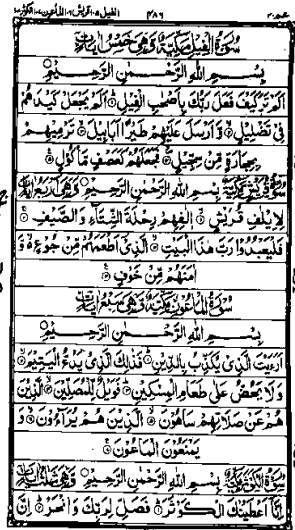 الفيل ١٠٥ قريش ١٠٦ الماعون ١٠٧ الكوثر ١٠٨ ٤٨٦ عم ٣٠
سُوْرَةُ الْفِيْلِ مَكِّيَّةٌ وَّهِيَ خَمْسُ اٰيَاتٍ
بِسْمِ اللهِ الرَّحْمٰنِ الرَّحِيْمِ
اَلَمْ تَرَ كَيْفَ فَعَلَ رَبُّكَ بِاَصْحٰبِ الْفِيْلِ ۝ اَلَمْ يَجْعَلْ كَيْدَهُمْ
فِيْ تَضْلِيْلٍ ۝ وَّاَرْسَلَ عَلَيْهِمْ طَيْرًا اَبَابِيْلَ ۝ تَرْمِيْهِمْ
بِحِجَارَةٍ مِّنْ سِجِّيْلٍ ۝ فَجَعَلَهُمْ كَعَصْفٍ مَّاْكُوْلٍ ۝
سُوْرَةُ قُرَيْشٍ مَكِّيَّةٌ بِسْمِ اللهِ الرَّحْمٰنِ الرَّحِيْمِ وَّهِيَ اَرْبَعُ اٰيَاتٍ
لِاِيْلٰفِ قُرَيْشٍ ۝ اٖلٰفِهِمْ رِحْلَةَ الشِّتَآءِ وَالصَّيْفِ ۝
فَلْيَعْبُدُوْا رَبَّ هٰذَا الْبَيْتِ ۝ الَّذِيْٓ اَطْعَمَهُمْ مِّنْ جُوْعٍ ۝ وَّ
اٰمَنَهُمْ مِّنْ خَوْفٍ ۝
سُوْرَةُ الْمَاعُوْنِ مَكِّيَّةٌ وَّهِيَ سَبْعُ اٰيَاتٍ
بِسْمِ اللهِ الرَّحْمٰنِ الرَّحِيْمِ
اَرَءَيْتَ الَّذِيْ يُكَذِّبُ بِالدِّيْنِ ۝ فَذٰلِكَ الَّذِيْ يَدُعُّ الْيَتِيْمَ ۝
وَلَا يَحُضُّ عَلٰى طَعَامِ الْمِسْكِيْنِ ۝ فَوَيْلٌ لِّلْمُصَلِّيْنَ ۝ الَّذِيْنَ
هُمْ عَنْ صَلَاتِهِمْ سَاهُوْنَ ۝ الَّذِيْنَ هُمْ يُرَآءُوْنَ ۝ وَ
يَمْنَعُوْنَ الْمَاعُوْنَ ۝
سُوْرَةُ الْكَوْثَرِ مَكِّيَّةٌ بِسْمِ اللهِ الرَّحْمٰنِ الرَّحِيْمِ وَّهِيَ ثَلٰثُ اٰيَاتٍ
اِنَّآ اَعْطَيْنٰكَ الْكَوْثَرَ ۝ فَصَلِّ لِرَبِّكَ وَانْحَرْ ۝ اِنَّ